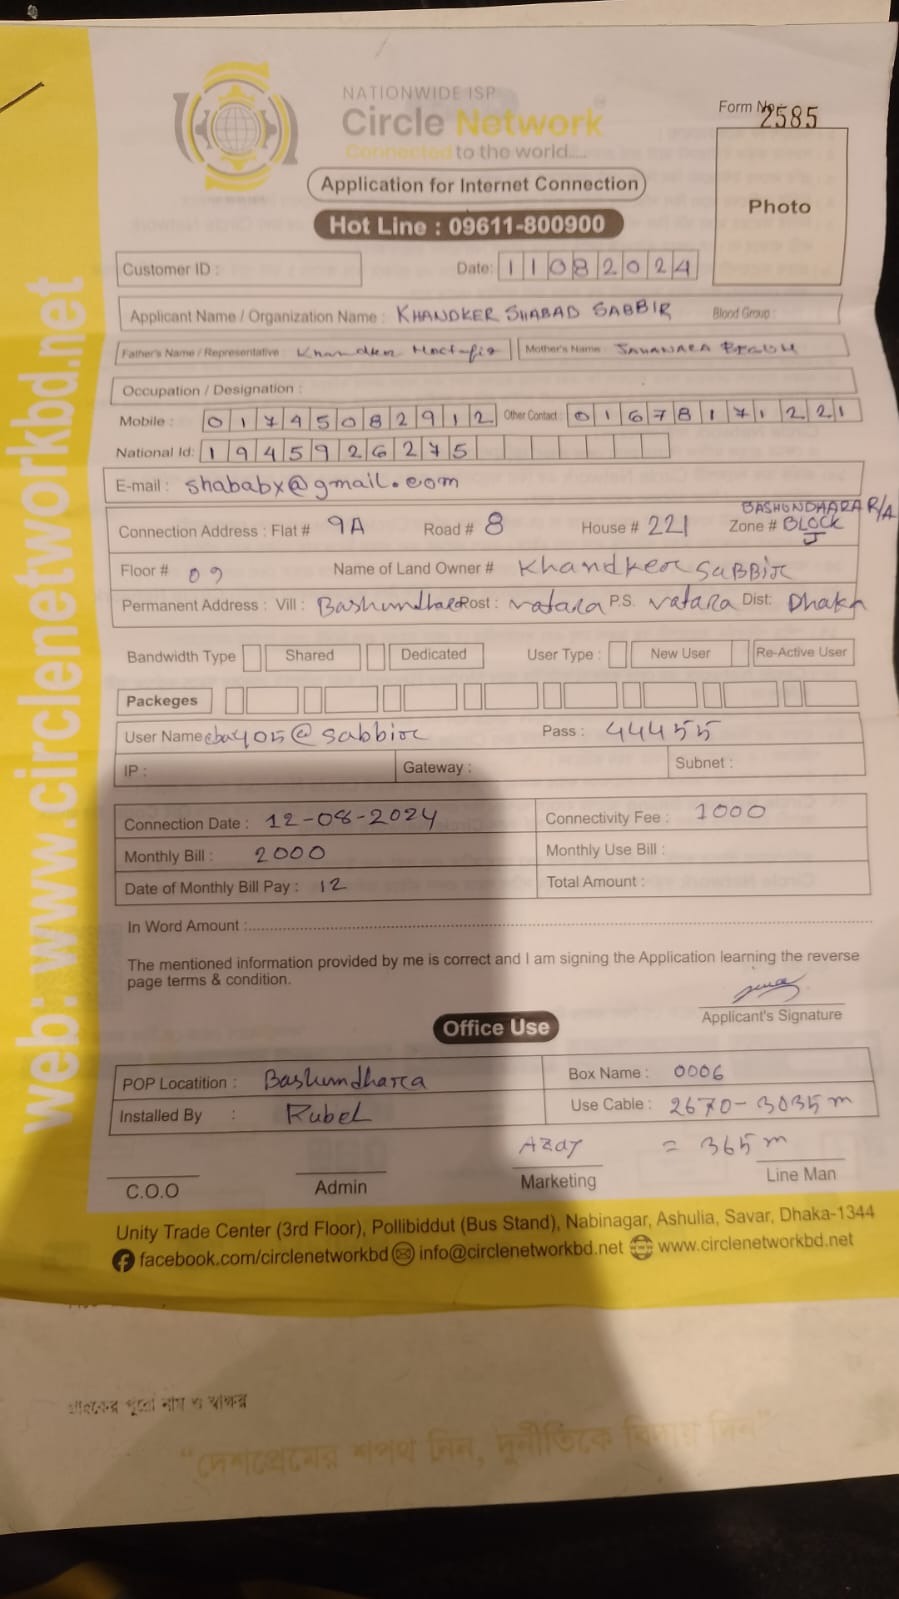 NATIONWIDE ISP
Circle Network
Connected to the world.....
Form No 2585
Application for Internet Connection
Photo
Hot Line : 09611-800900
Customer ID : Date: 11082024
Applicant Name / Organization Name : KHANDKER SHABAD SABBIR Blood Group :
Father's Name / Representative : Khandker Mother's Name : JAHANARA BEGUM
Occupation / Designation :
Mobile : 01745082912 Other Contact : 01678171221
National Id: 1945926275
E-mail : shababx@gmail.com
BASHUNDHARA R/A
Connection Address : Flat # 9A Road # 8 House # 221 Zone # BLOCK J
Floor # 09 Name of Land Owner # Khandker SABBIR
Permanent Address : Vill : Bashundhara Post : vatara P.S. vatara Dist: Dhaka
Bandwidth Type Shared Dedicated User Type : New User Re-Active User
Packeges
User Name 405@sabbir Pass : 44455
IP : Gateway : Subnet :
Connection Date : 12-08-2024 Connectivity Fee : 1000
Monthly Bill : 2000 Monthly Use Bill :
Date of Monthly Bill Pay : 12 Total Amount :
In Word Amount :
The mentioned information provided by me is correct and I am signing the Application learning the reverse
page terms & condition.
Applicant's Signature
Office Use
POP Locatition : Bashundhara Box Name : 0006
Installed By : Rubel Use Cable : 2670-3035m
AZAY = 365m
C.O.O Admin Marketing Line Man
Unity Trade Center (3rd Floor), Pollibiddut (Bus Stand), Nabinagar, Ashulia, Savar, Dhaka-1344
facebook.com/circlenetworkbd info@circlenetworkbd.net www.circlenetworkbd.net
web: www.circlenetworkbd.net
গ্রাহকের পুরো নাম ও স্বাক্ষর
"দেশপ্রেমের শপথ নিন, দুর্নীতিকে বিদায় দিন"